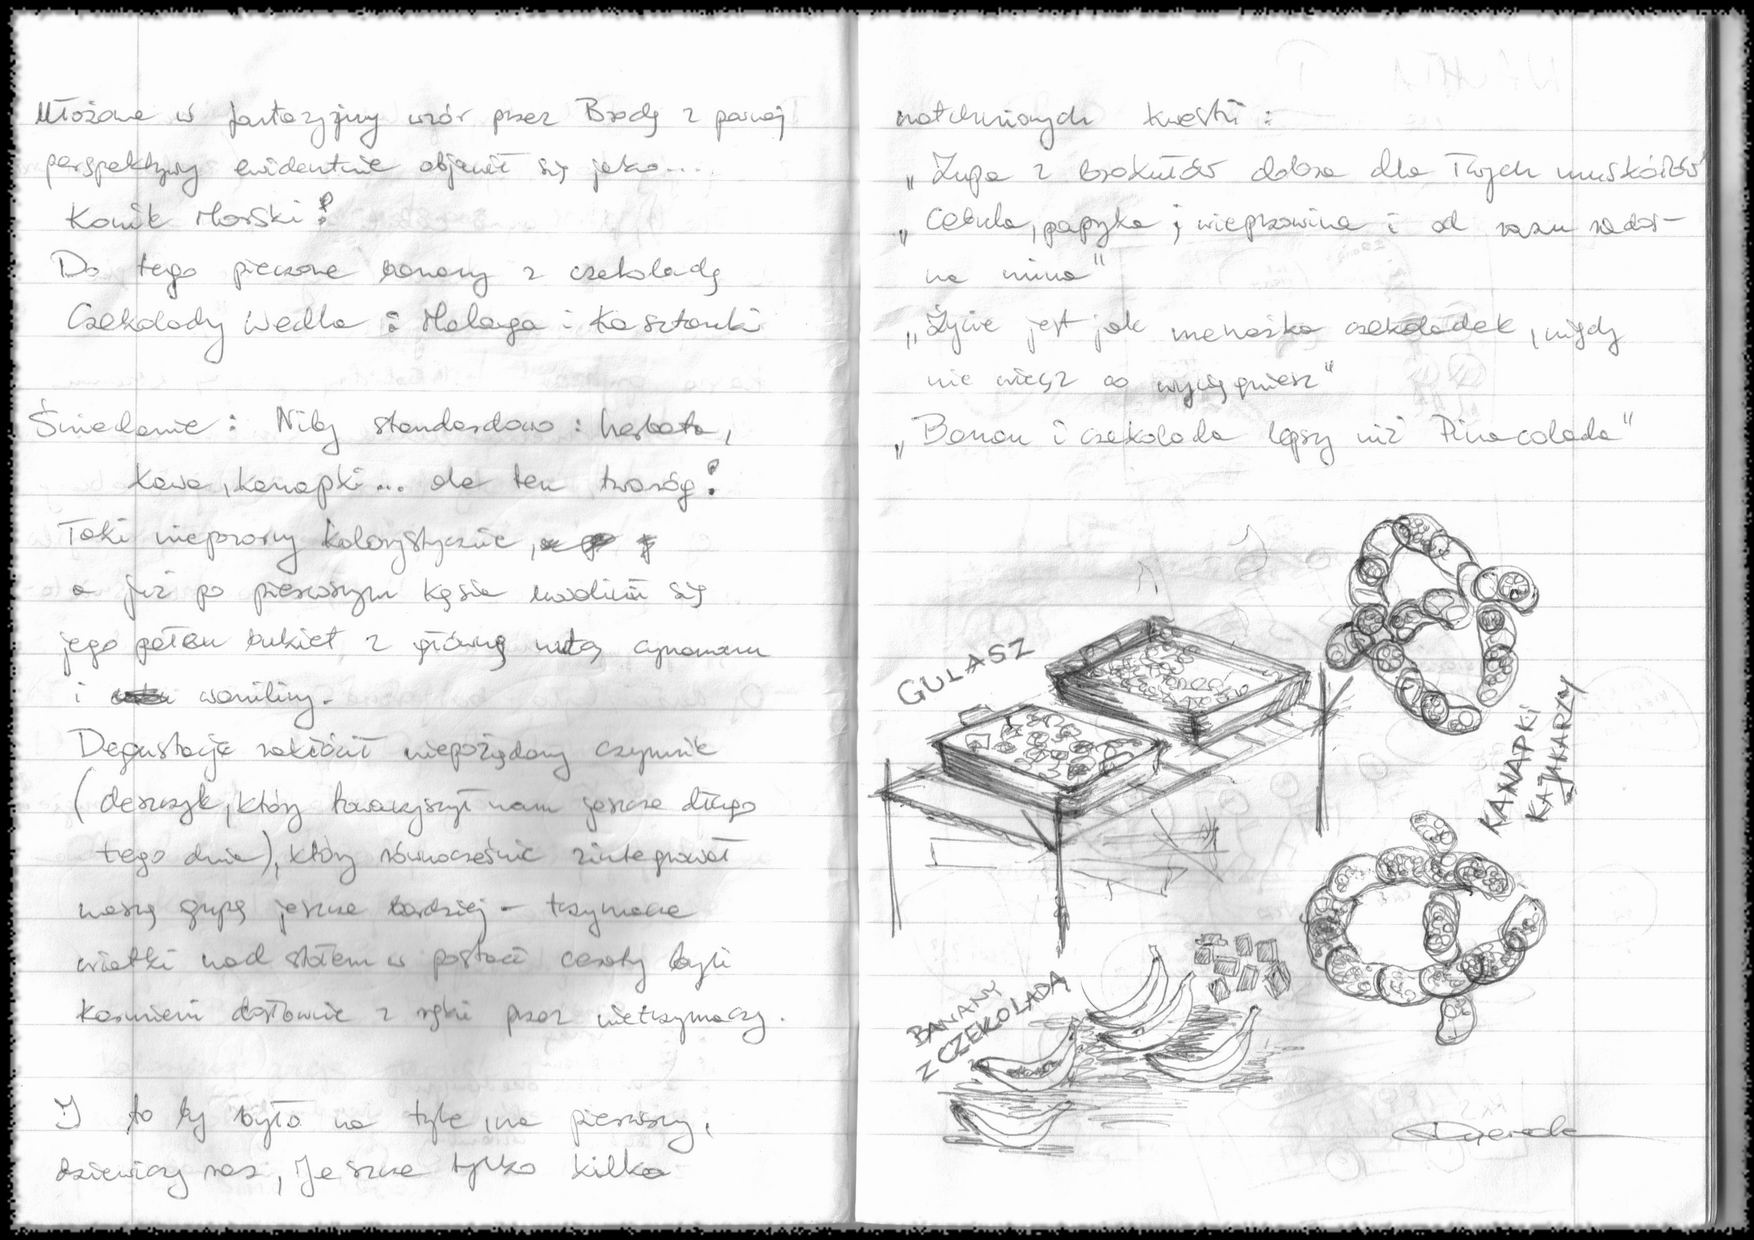 Ułożone w fantazyjny wzór przez Brodę z pewnej
perspektywy ewidentnie objawił się jako....
Konik Morski!
Do tego pieczone banany z czekoladą
Czekolady Wedla : Malaga i Kasztanki
Śniadanie : Niby standardowo : herbata,
kawa, kanapki... ale ten twaróg!
Taki niepozorny kolorystycznie,
a już po pierwszym kęsie uwolnił się
jego pełen bukiet z główną nutą cynamonu
i waniliny.
Degustację zakłócił niepożądany czynnik
(deszczyk, który towarzyszył nam jeszcze długo
tego dnia), który równocześnie zintegrował
naszą grupę jeszcze bardziej - trzymacze
wiatki nad stołem w postaci ceraty byli
karmieni dosłownie z ręki przez nietrzymaczy.
I to by było na tyle, na pierwszy,
dziewiczy raz, Jeszcze tylko kilka
natchnionych kwestii :
„Zupa z brokułów dobra dla Twych muskółów
„Cebula, papryka i wieprzowina i od razu rados-
na mina"
„Życie jest jak menażka czekoladek, nigdy
nie wiesz co wyciągniesz"
„Banan i czekolada lepszy niż Pinacolada"
GULASZ
KANAPKI
KAJAKARZY
BANANY
Z CZEKOLADĄ